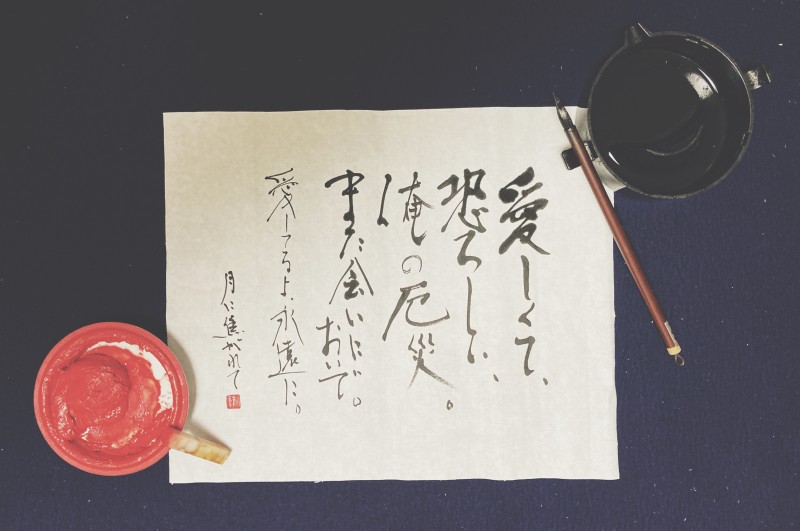 愛しくて、
恐ろしい、
俺の厄災。
また会いに
おいで。
愛してるよ、永遠に。
月に焦がれて